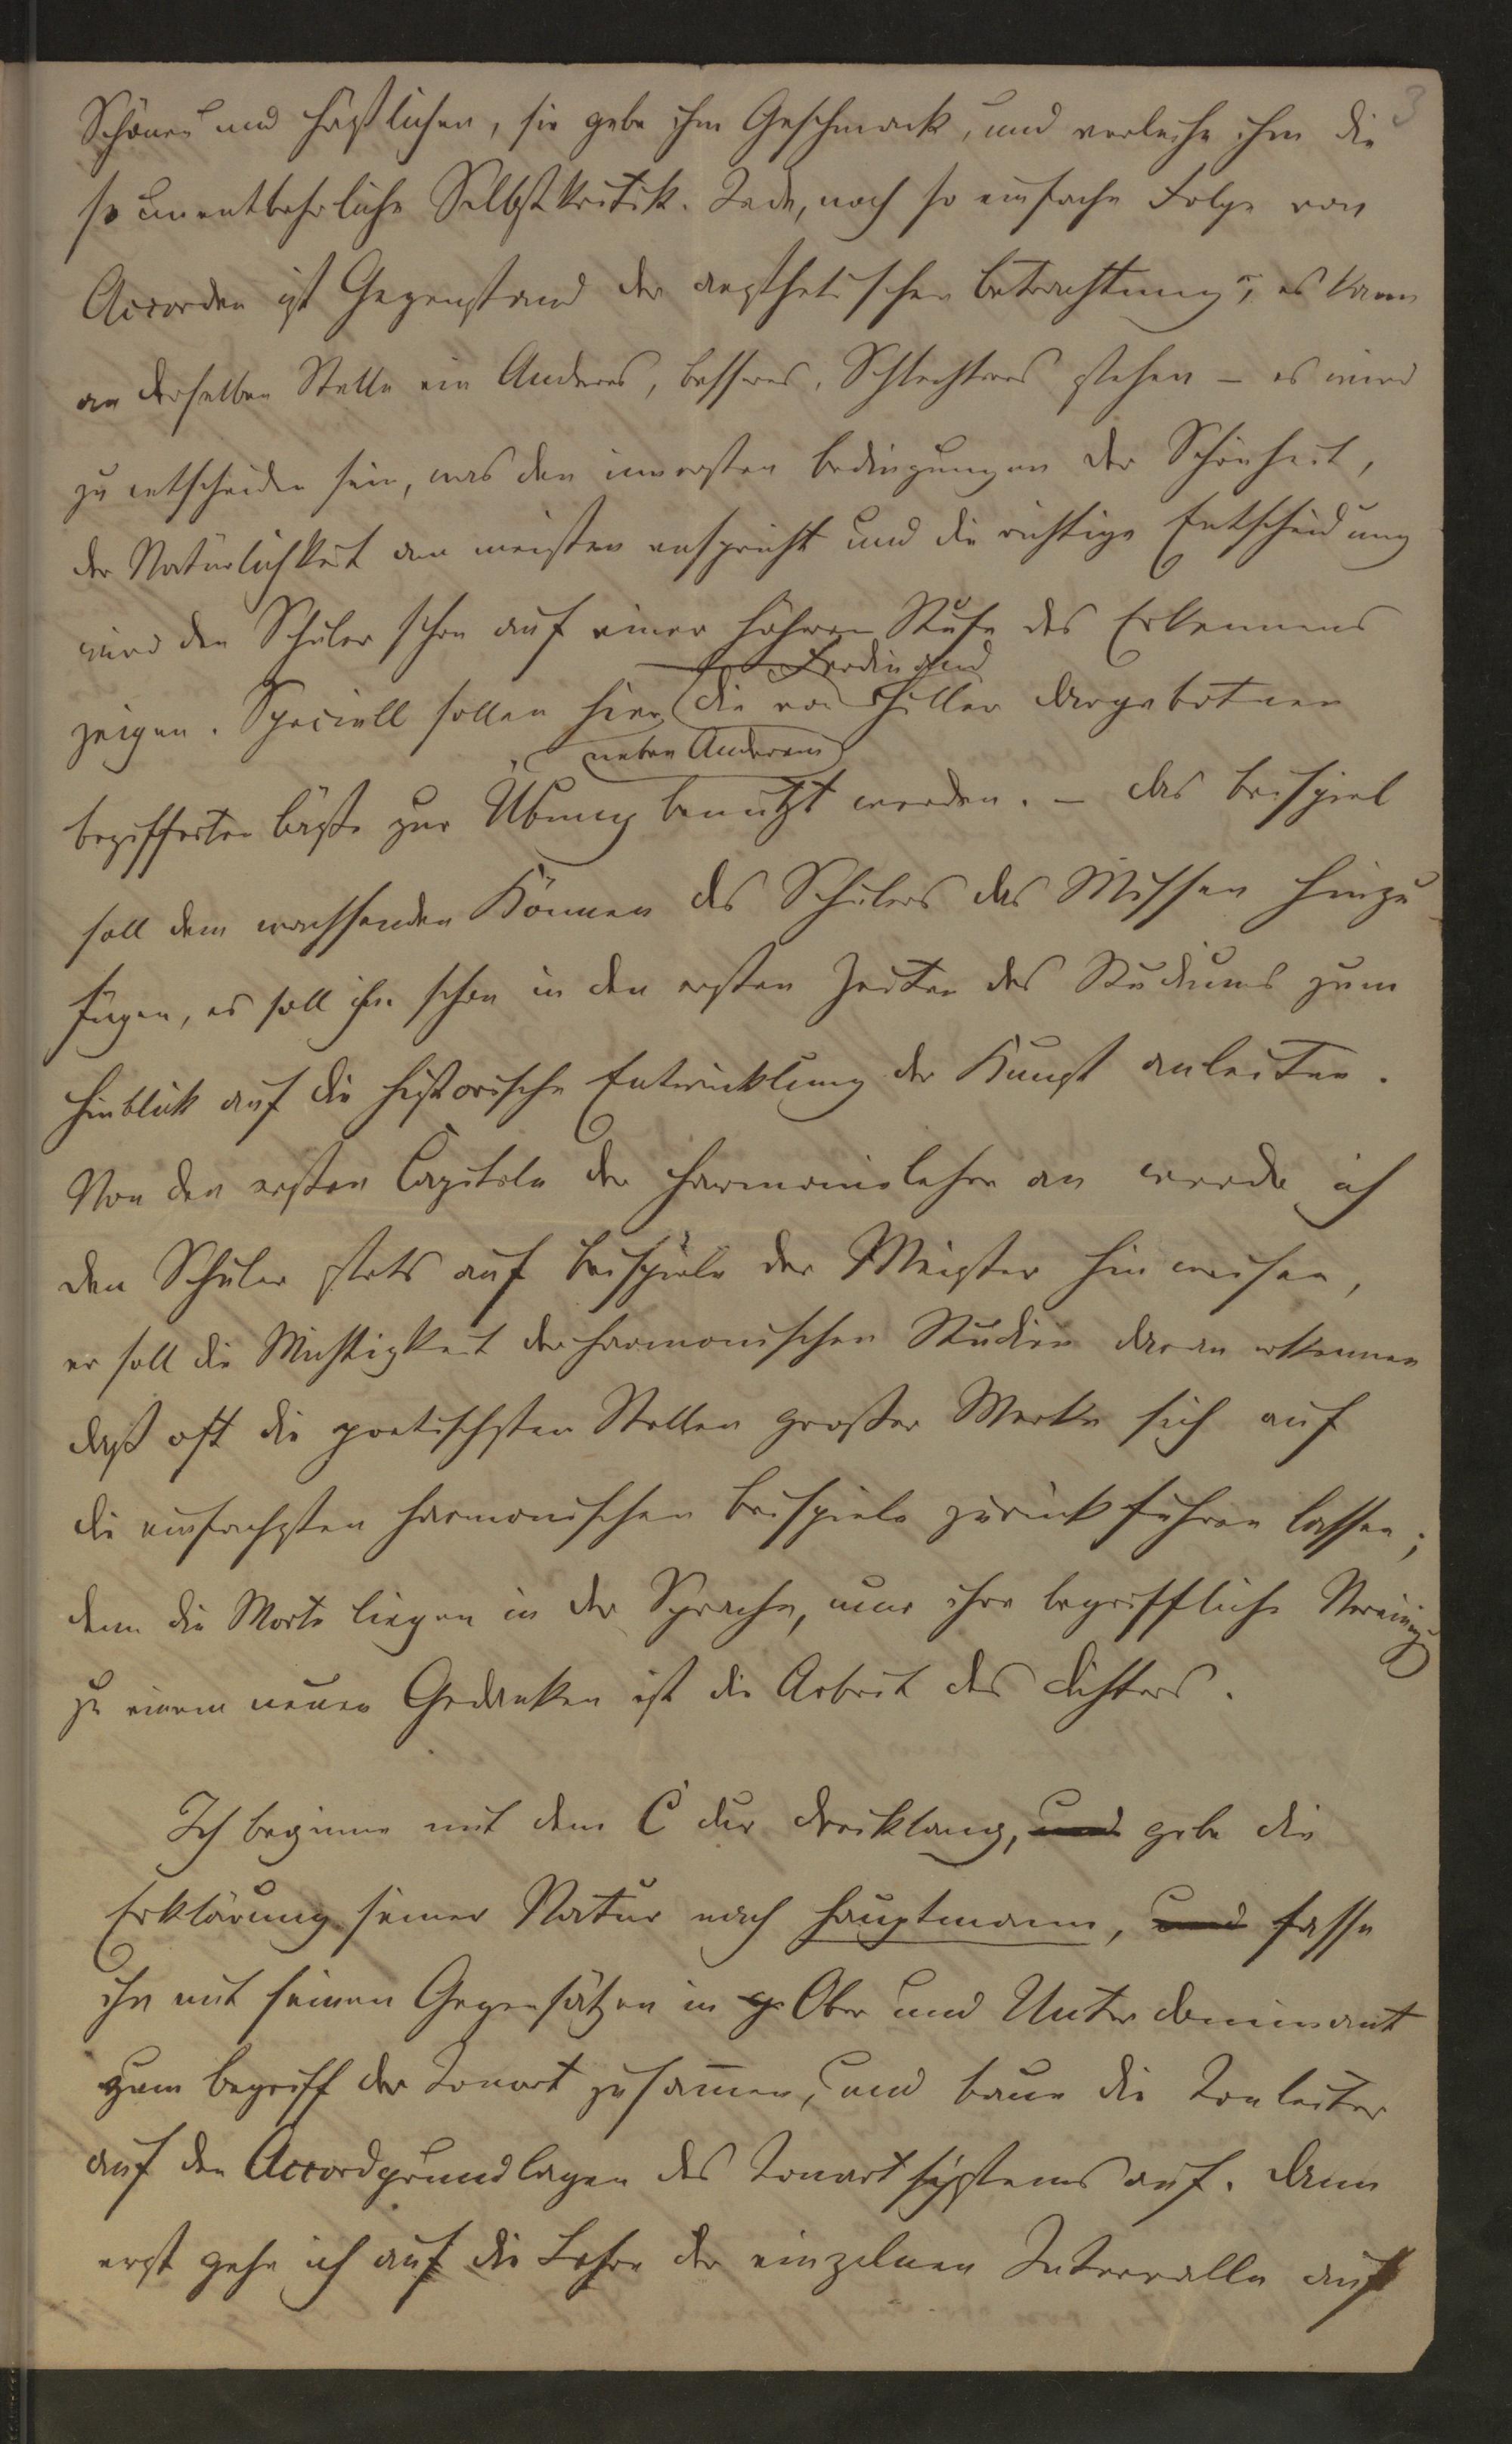 3
Schönen und Häßlichen, sie gebe ihm Geschmack, und verleihe ihm die
so unentbehrliche Selbstkritik. Jede, noch so einfache Folge von
Accorden ist Gegenstand der aesthetischen Betrachtung, es kann
an derselben Stelle ein Anderes, Besseres, Schlechteres stehen – es wird
zu entscheiden sein, was den innersten Bedingungen der Schönheit,
der Natürlichkeit am meisten entspricht und die richtige Entscheidung
wird den Schüler schon auf einer höheren Stufe des Erkennens
Ferdinand
zeigen. Speciell sollen hier die von Hiller dargebotnen
neben Anderem
bezifferten Bäße zur Übung benutzt werden. – Das Beispiel
soll dem wachsenden Können des Schülers das Wissen hinzu
fügen, es soll ihn schon in den ersten Zeiten des Studiums zum
Hinblick auf die historische Entwicklung der Kunst anleiten.
Von den ersten Capiteln der Harmonielehre an werde ich
den Schüler stets auf Beispiele der Meister hinweisen,
er soll die Wichtigkeit der harmonischen Studien daran erkennen
daß oft die poetischsten Stellen großer Werke sich auf
die einfachsten harmonischen Beispiele zurückführen lassen;
denn die Worte liegen in der Sprache, nur ihre begriffliche Vereinig
zu einem neuen Gedanken ist die Arbeit des Dichters.
Ich beginne mit dem C dur Dreiklang, und gebe die
Erklärung seiner Natur nach Hauptmann, und fasse
ihn mit seinen Gegensätzen in Ober und Unterdominant
zum Begriff der Tonart zusam̅en, und baue die Tonleiter
auf den Accordgrundlagen des Tonartsystems auf. Dann
erst gehe ich auf die Lehre der einzelnen Intervalle auf